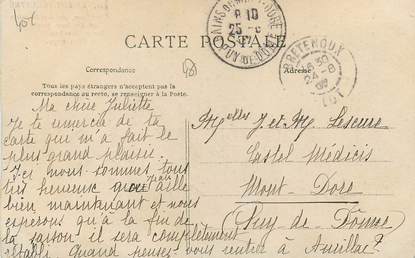 401
8 10
25-8
PUY-DE-DOME
CARTE POSTALE
BRETENOUX
24-8
09
LOT
Correspondance
401
Adresse
Tous les pays étrangers n'acceptent pas la
correspondance au recto, se renseigner à la Poste.
Ma chère Juliette
Je te remercie de ta
carte qui m'a fait le
plus grand plaisir.
Ici nous sommes tous
très heureux que aille
bien maintenant et nous
espérons qu'à la fin de
la saison il sera complètement
établi. Quand pensez-vous rentrer à Aurillac?
Melles J. et M. Lescure
Castel Médicis
Mont-Dore
(Puy-de-Dôme)